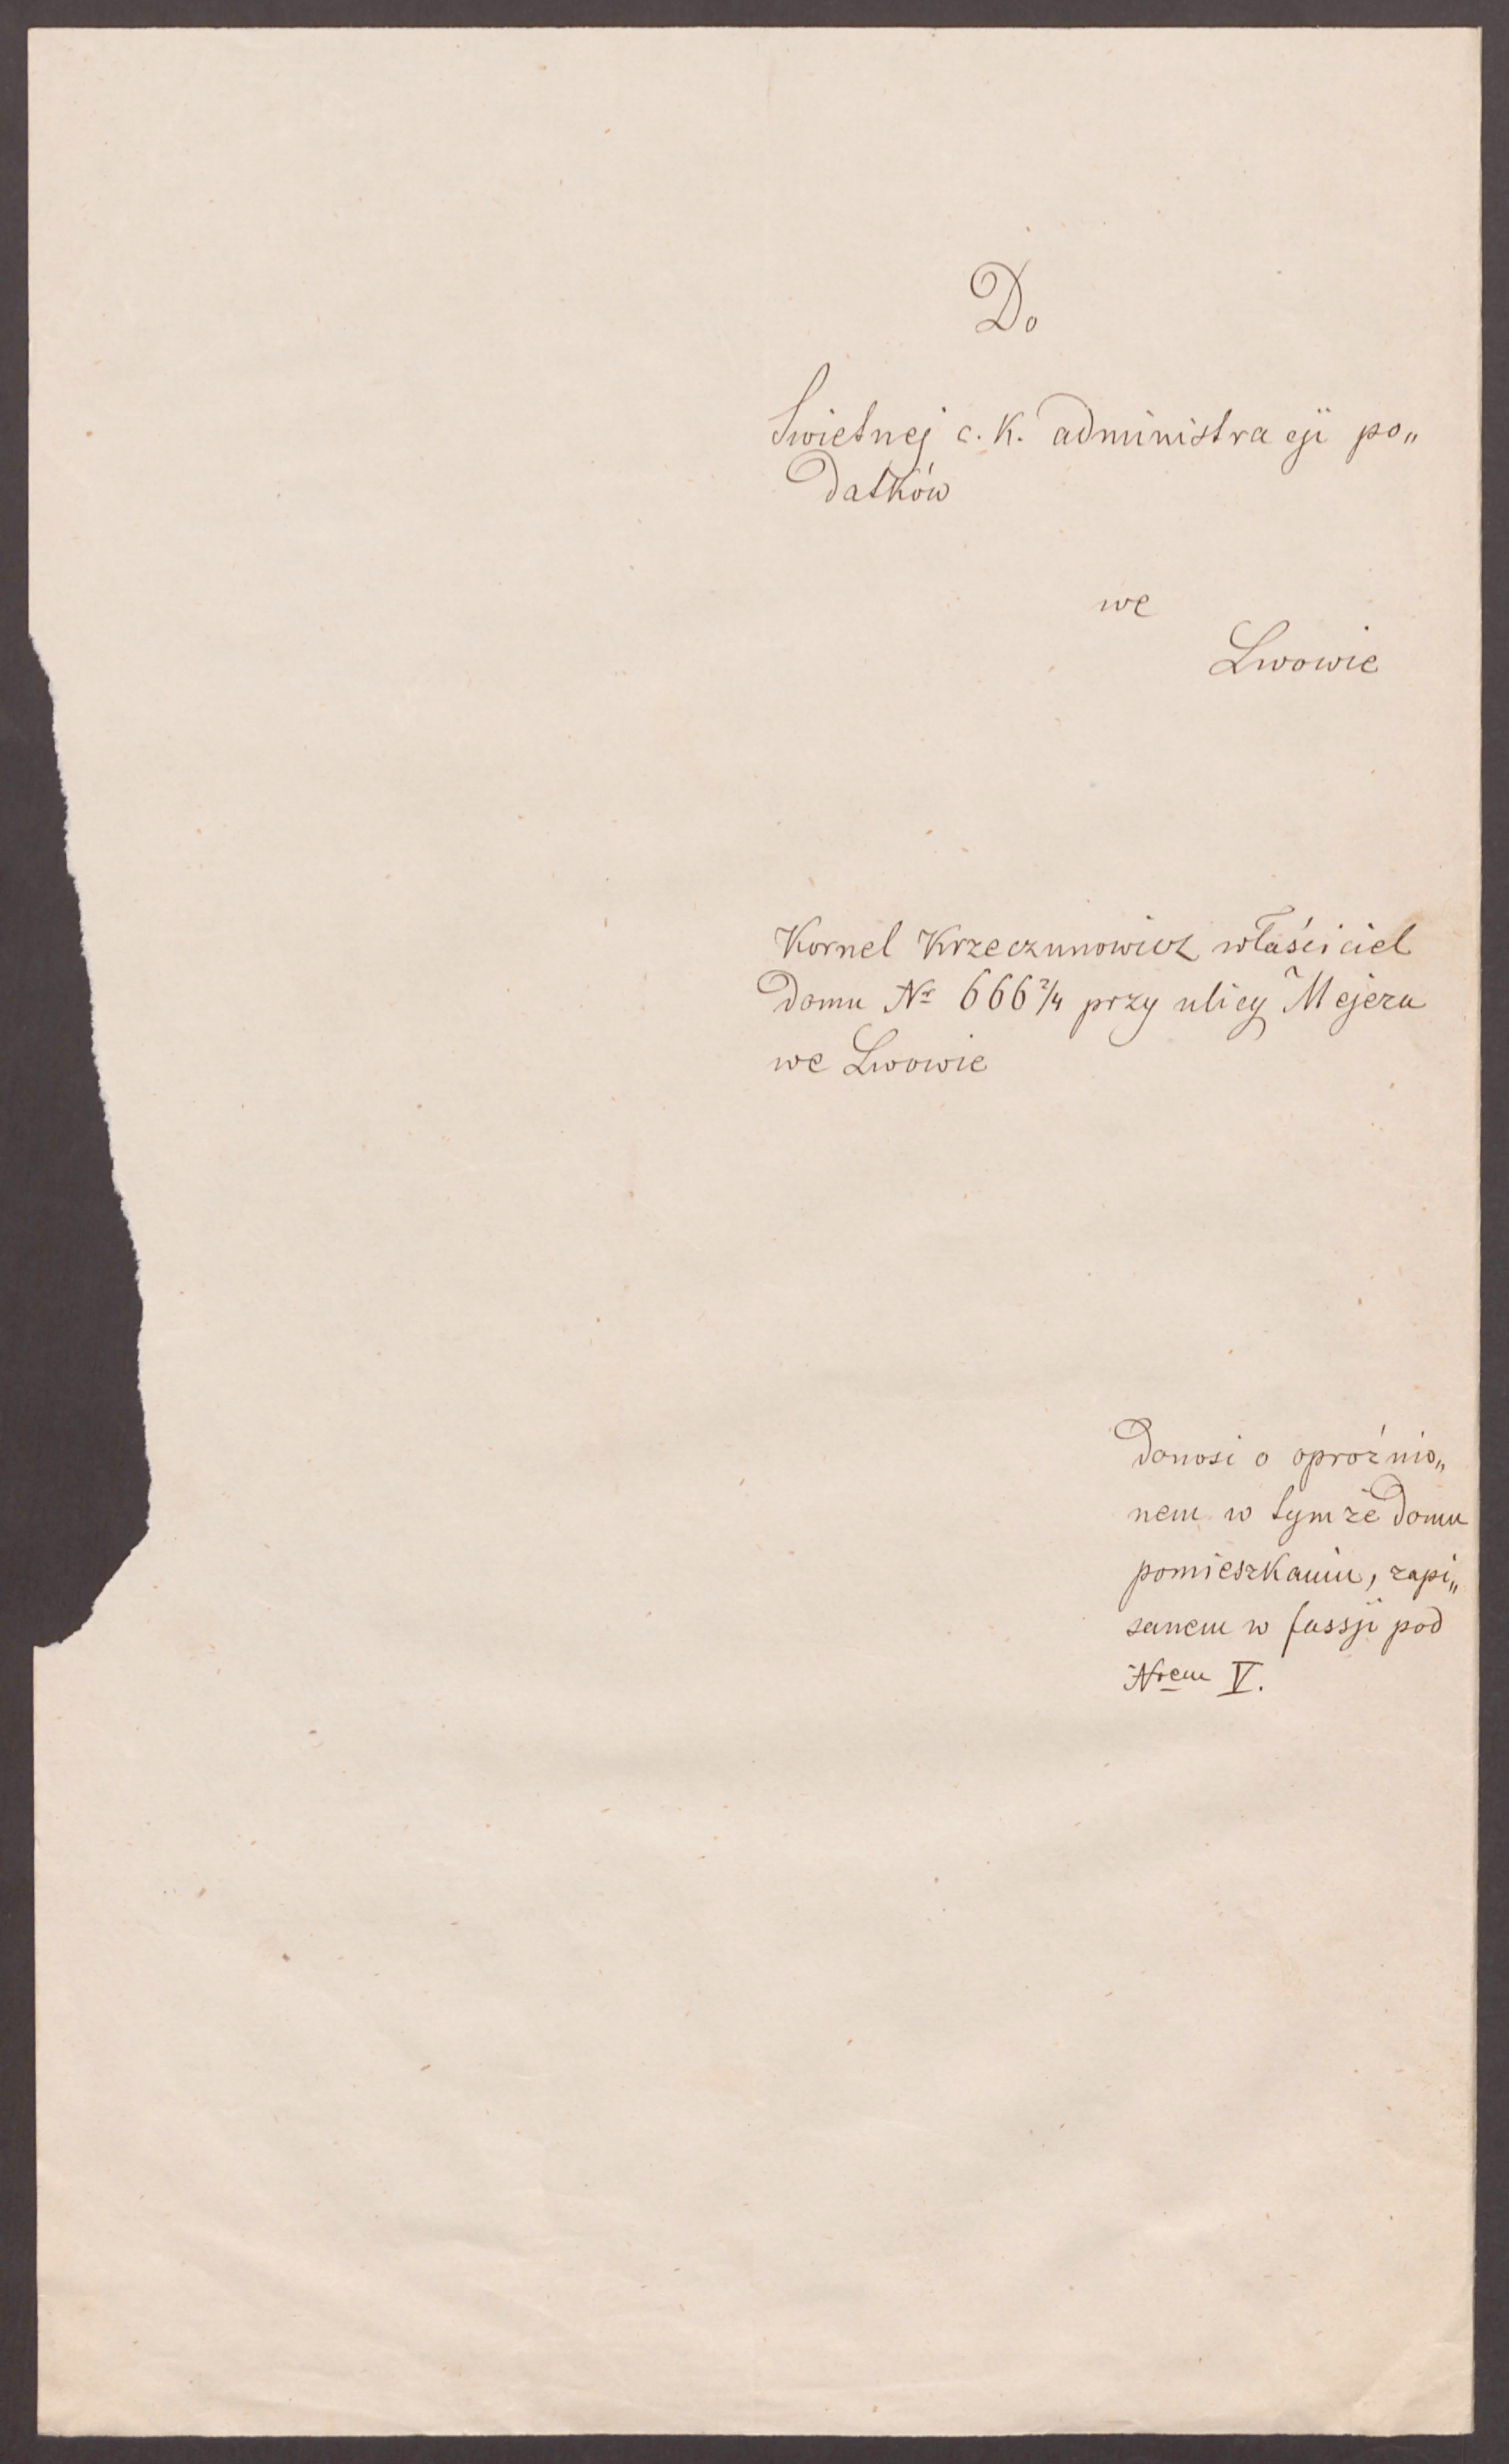 Do
Swietnej c. K. administracji po„
datków
we
Lwowie
Kornel Krzeczunowicz właściciel
domu Nr 666 2/4 przy ulicy Mejera
we Lwowie
donosi o opróżnio„
nem w tymże domu
pomieszkaniu, zapi„
sanem w fassji pod
Nrem V.